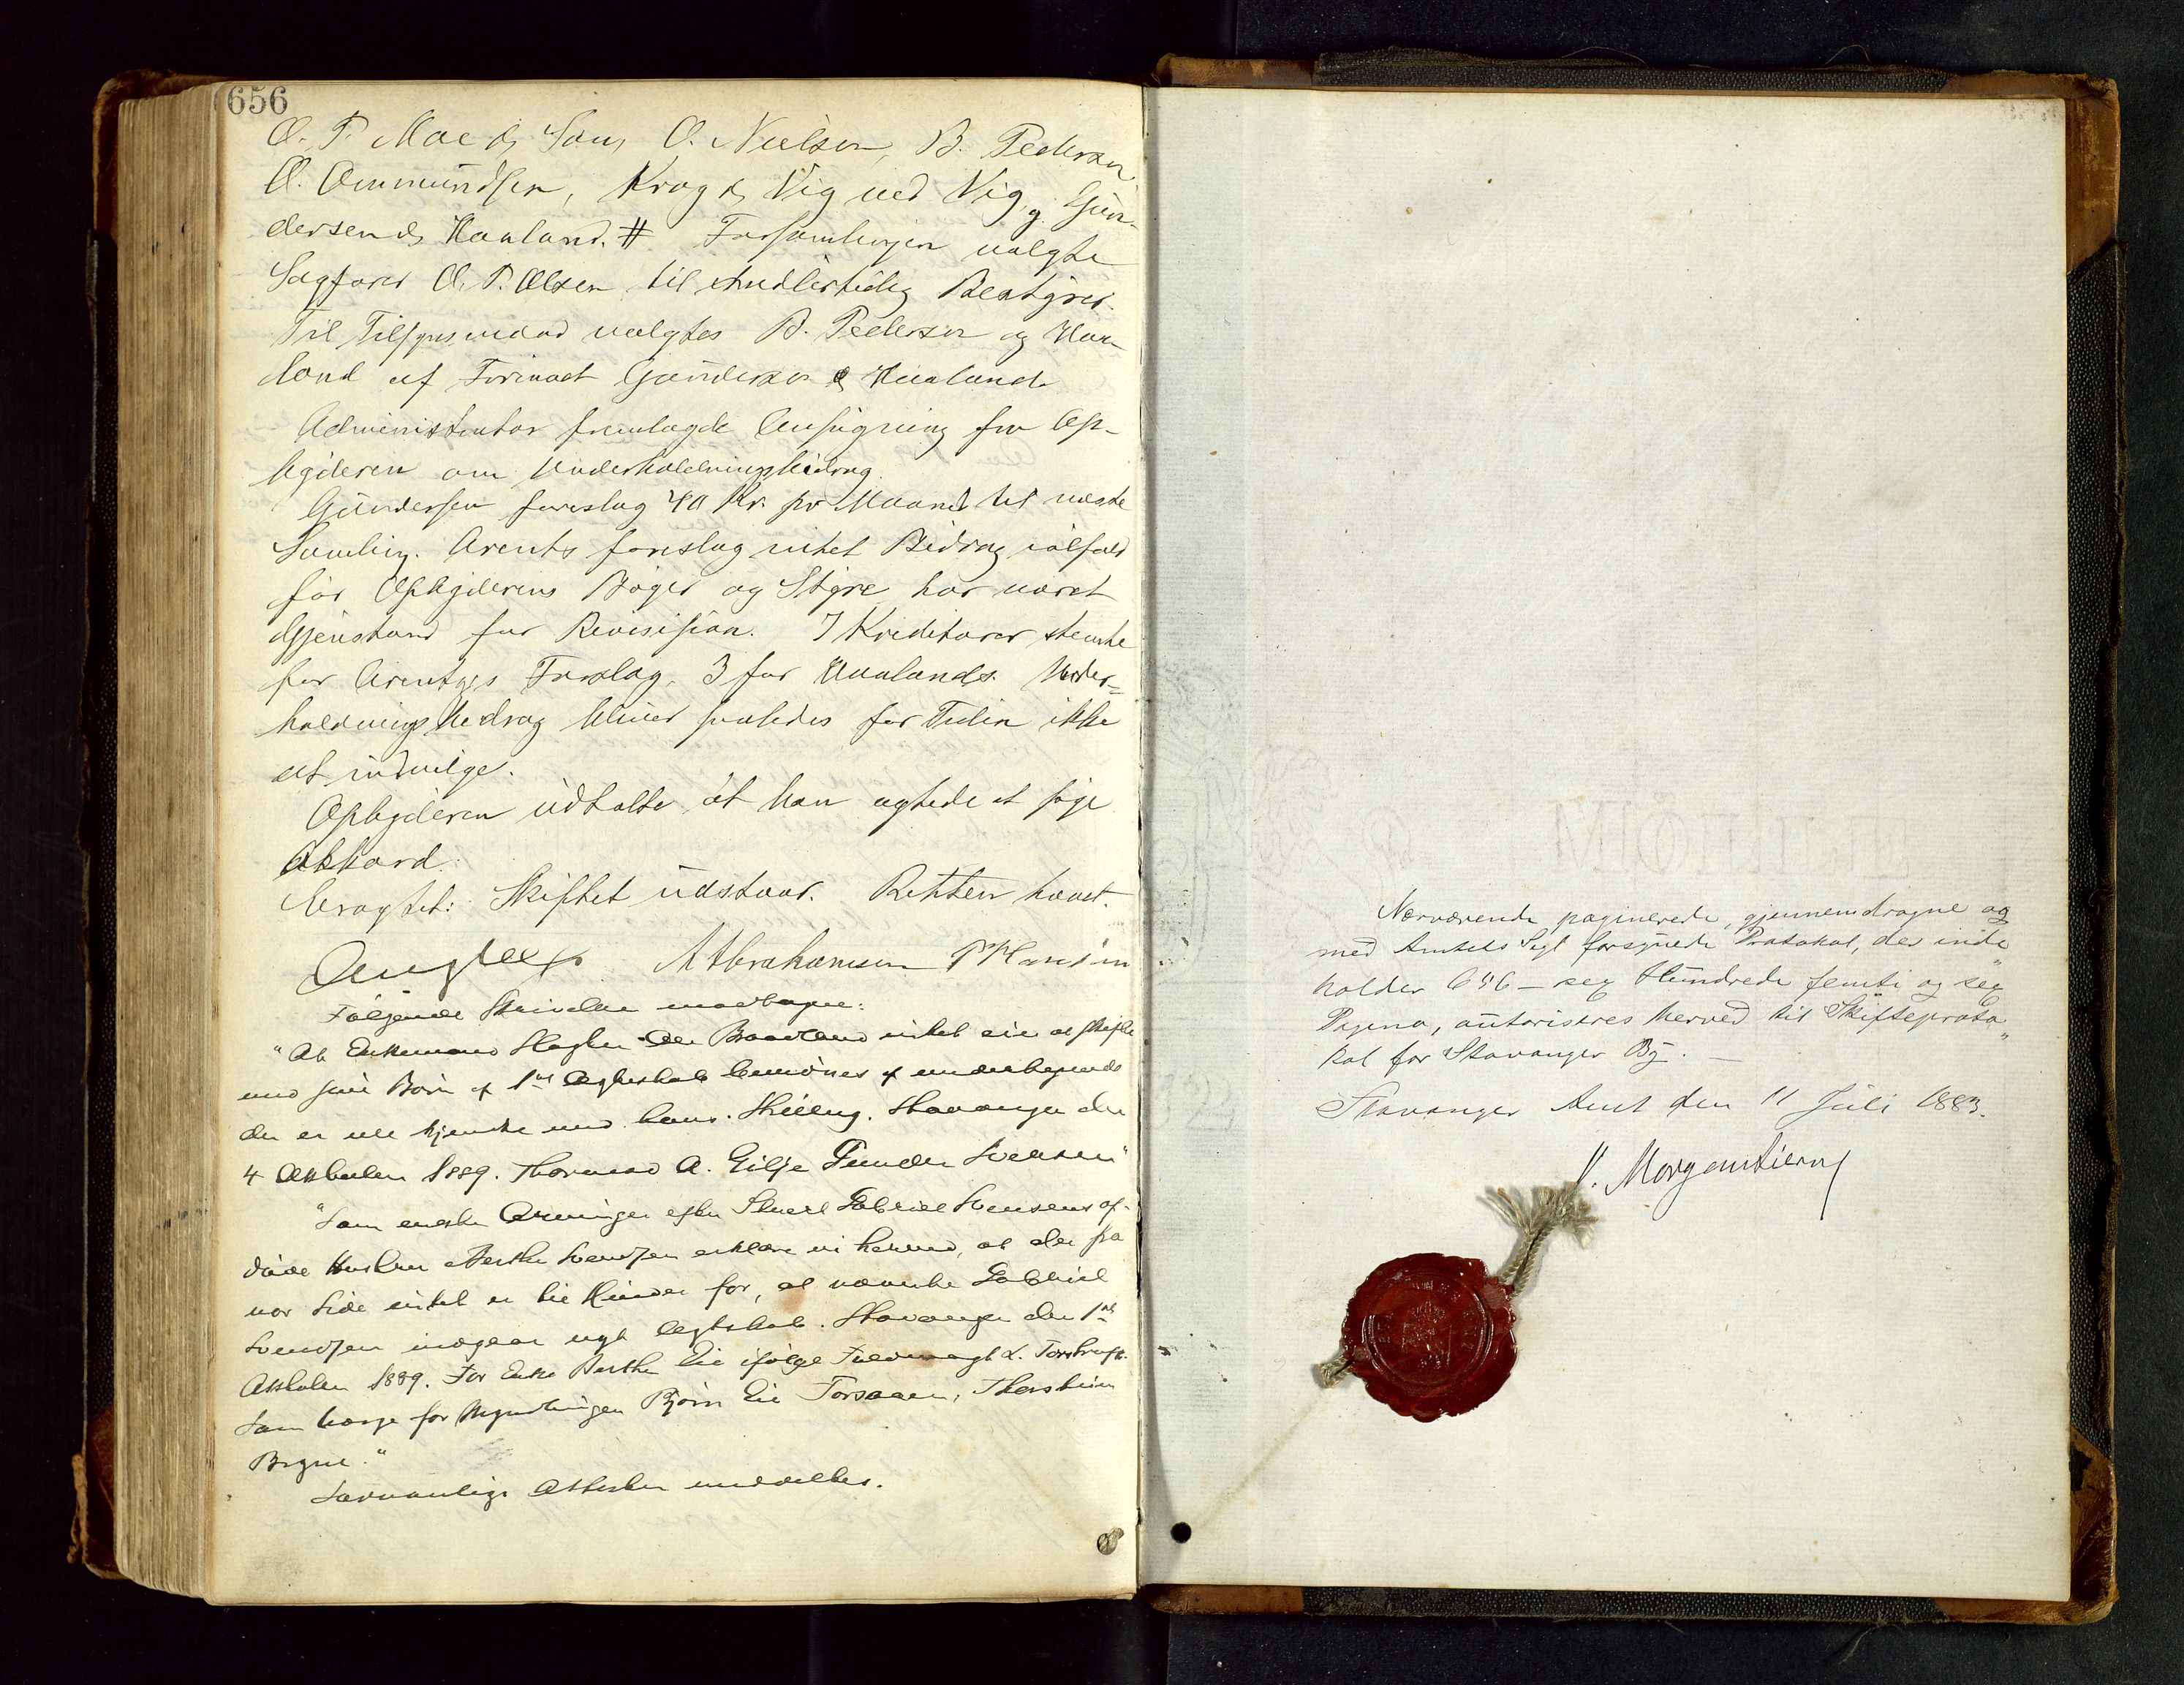 656
O. T. Moe & Søn, O. Nielsen, B. Pedersen,
O. Ommundsen, Krog & Vig ved Vig, g. Gun-
dersen & Haaland. # Forsamlingen valgte
Sagfører O. T. Olsen til midlertidig Bestyrer.
Til Tilsynsmænd valgtes B. Pedersen og Haa-
land af Firmaet Gundersen & Haaland.
Administrator fremlagde Ansøgning fra Op-
byderen om Underholdningsbidrag.
Gundersen foreslog 40 Kr. pr Maaned til næste
Samling. Arents foreslog intet Bidrag ialfald
før Opbyderens Bøger og Styre har været
Gjenstand for Revision. 7 Kreditorer stemte
for Arentzes Forslag, 3 for Haalands. Under-
holdningsbidrag bliver saaledes for Tiden ikke
at indvilge.
Opbyderen udtalte at han agtede at søge
Akkord.
Eragtet: Skiftet udstaar. Retten hævet.
M Abrahamsen P Hansen
Følgende Skrivelser modtages:
"At Enkemand Slagter Braaland intet eie at skifte
med sine Børn af 1ste Ægteskab bevidnes af undertegnede
der er vel kjendte med hans Stilling. Stavanger den
4 Oktober 1889. Thormod A. Gilje Gunder Svensen"
"Som eneste Arvinger efter Gabriel Svensens af-
døde Hustru Berthe Svendsen erklære vi herved, at der fra
vor Side intet er til Hinder for, at nævnte Gabriel
Svendsen indgaar nyt Ægteskab. Stavanger den 1ste
Oktober 1889. For Enke Berthe Eie ifølge Fuldmagt L.
Som Værge for Myndlingen Bjørn Eie Torsaaen, Thorstein
Bryne."
Sædvanlige Attester meddeltes.
Nærværende paginerede, gjennemdragne og
med Amtets Segl forsynede Protokol, der inde
holder 656 – sex Hundrede femti og sex
Pagina, autoriseres herved til Skifteproto
kol for Stavanger By. –
Stavanger Amt den 11 Juli 1883.
V. Morgenstierne